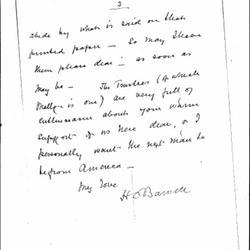 3
abide by what is said on that
printed paper — So may I have
them please dear: as soon as
may be — The Trustees (of which
Mellon is one) are very full of
enthusiasm about your warm
support of us here dear, & I
personally want the next man to
be from America —
My love
H O Barnett